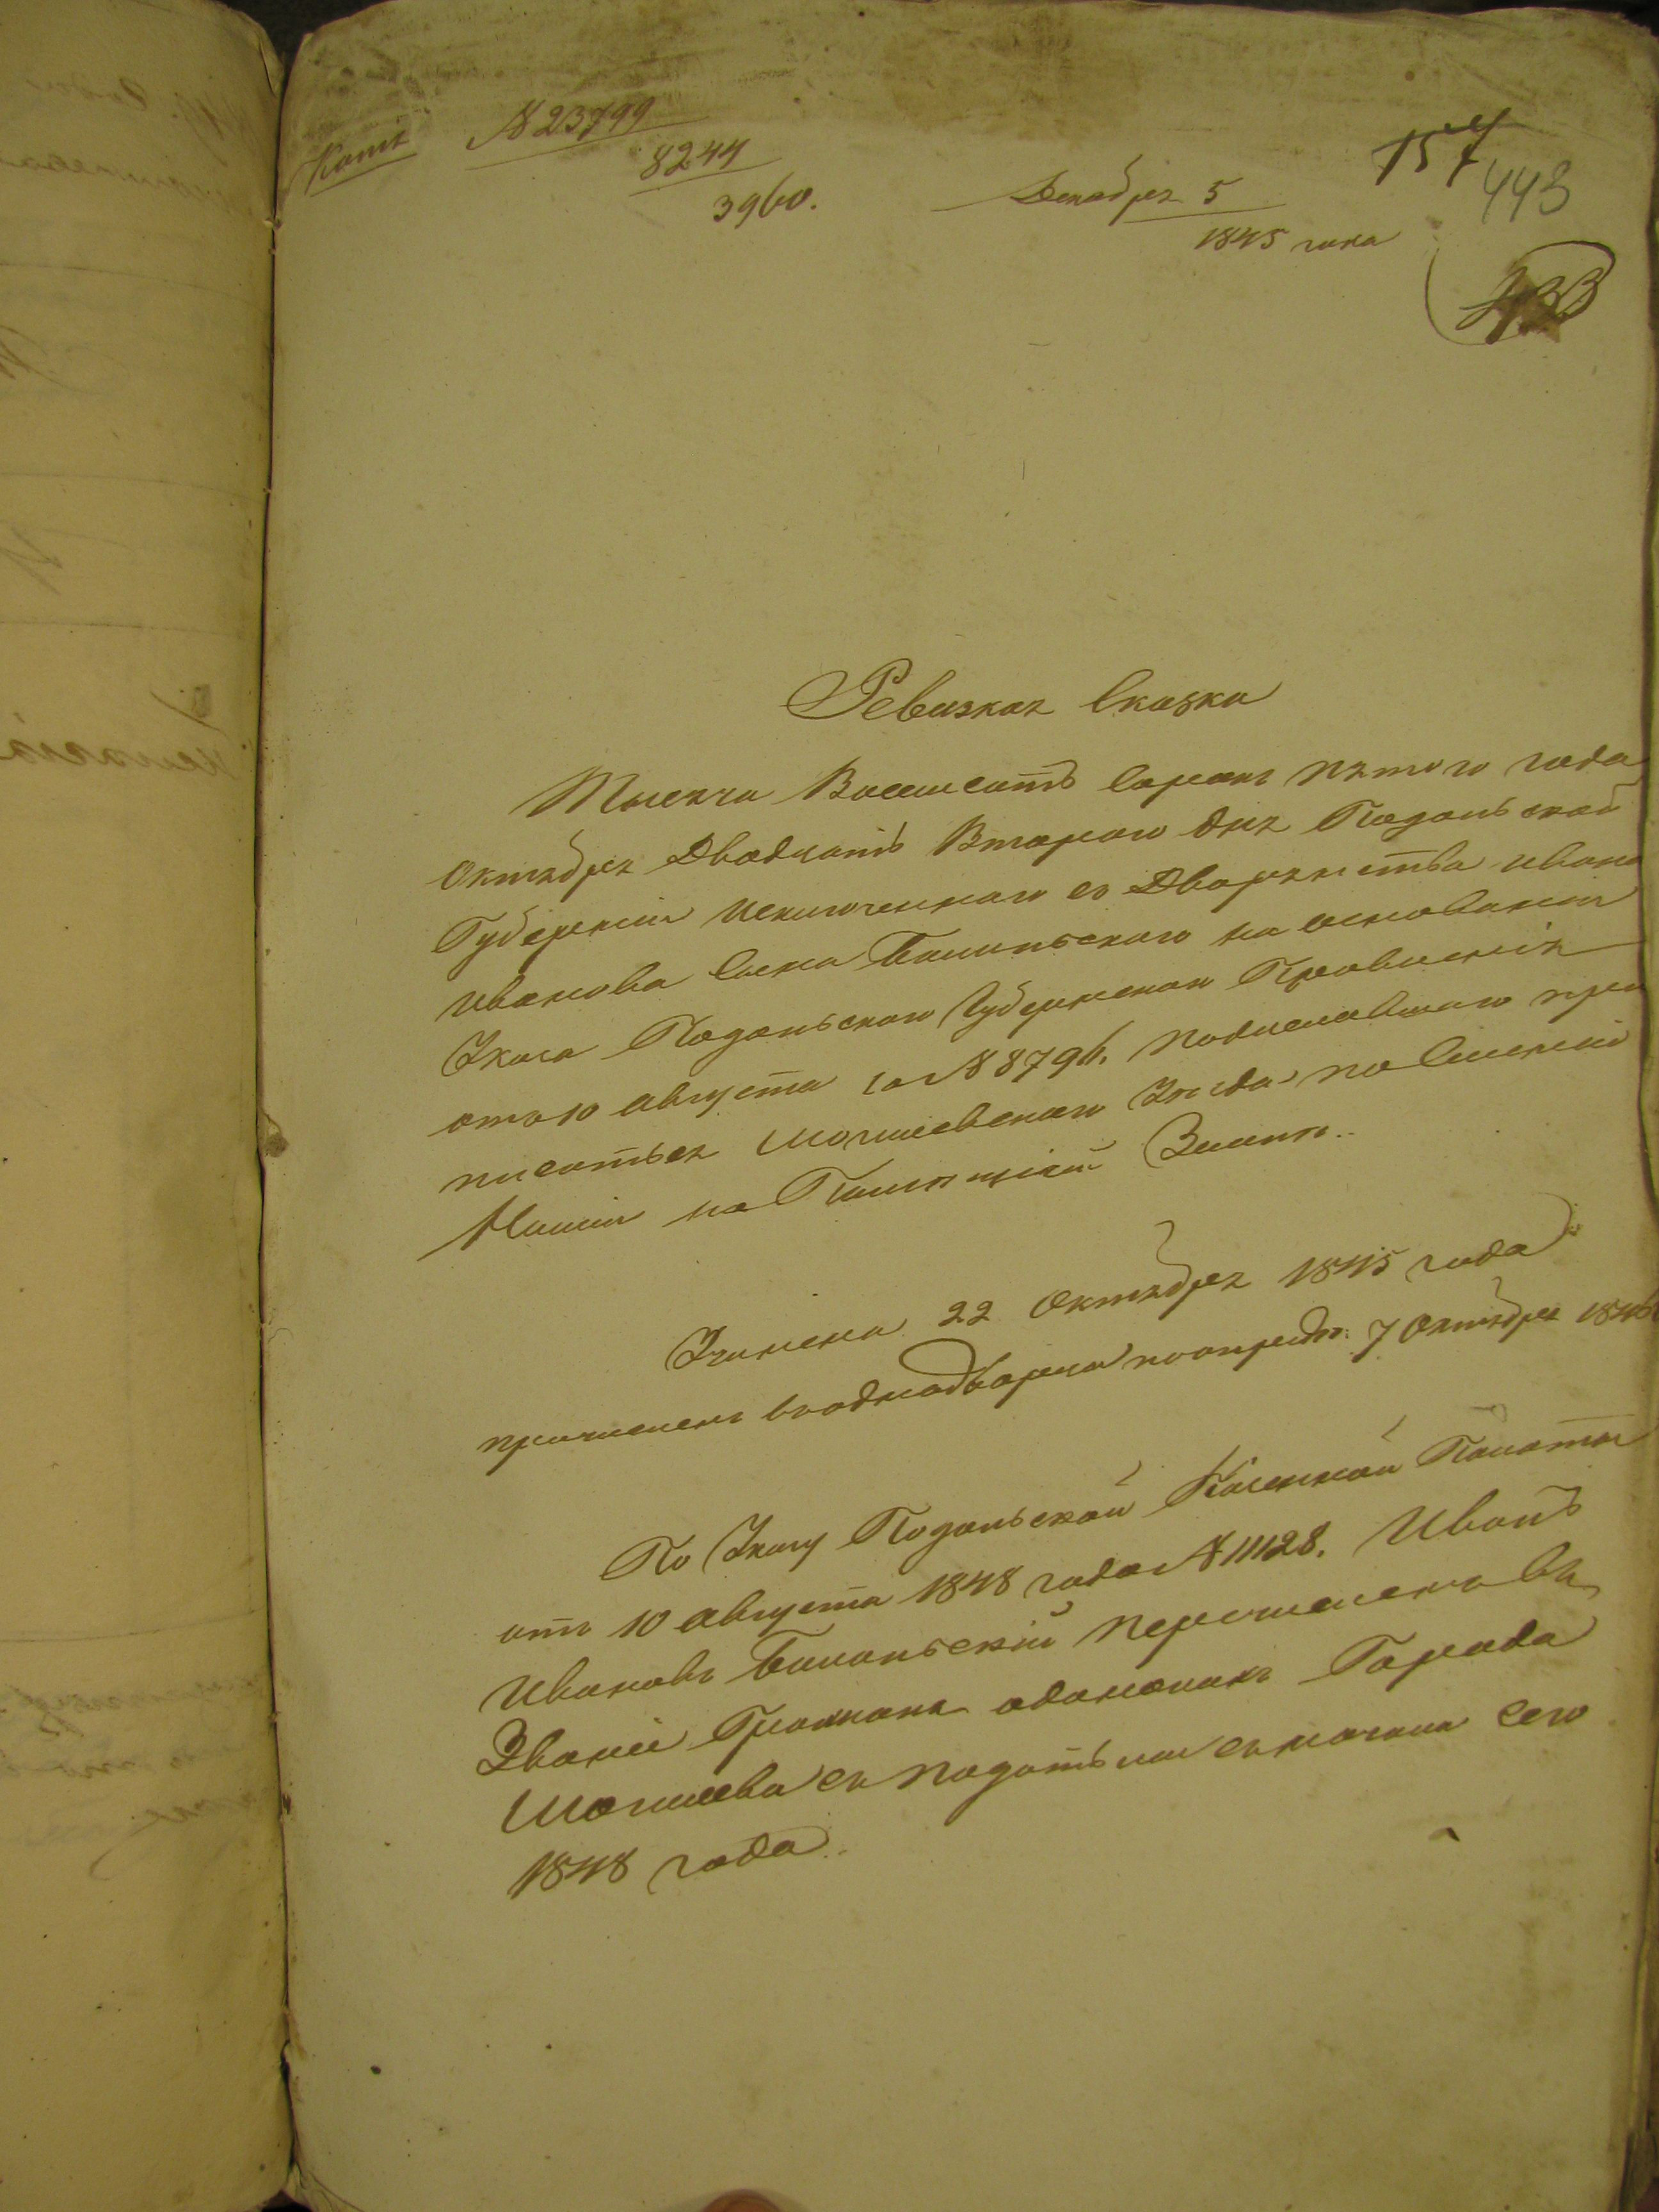 Копія
№ 23799
8244
3960.
Декабря 5
1845 года
157
443
433
Ревизкая Сказка
Тысяча Восемсотъ Сорокъ пятого года
Октября Двадцать Втораго дня Подольской
Губерніи Исключенного съ Дворянства Ивана
Иванова Сына на основаніи
Указа Подольского Губернского Правленія
отъ 10 августа за № 8796. подлежавшаго при
писаться Могилевского Уезда по
на Помѣщикій Земли.
Учинена 22 Октября 1845 года
причисленъ въ однодворцы по опредѣ: 7 Октября 1846
По Указу Подольской Казенной Палаты
отъ 10 августа 1848 года № 11128. Иванъ
Ивановъ перечисленъ въ
Званіи Гражданъ города
Могилева съ податьми съ начала сего
1848 года.